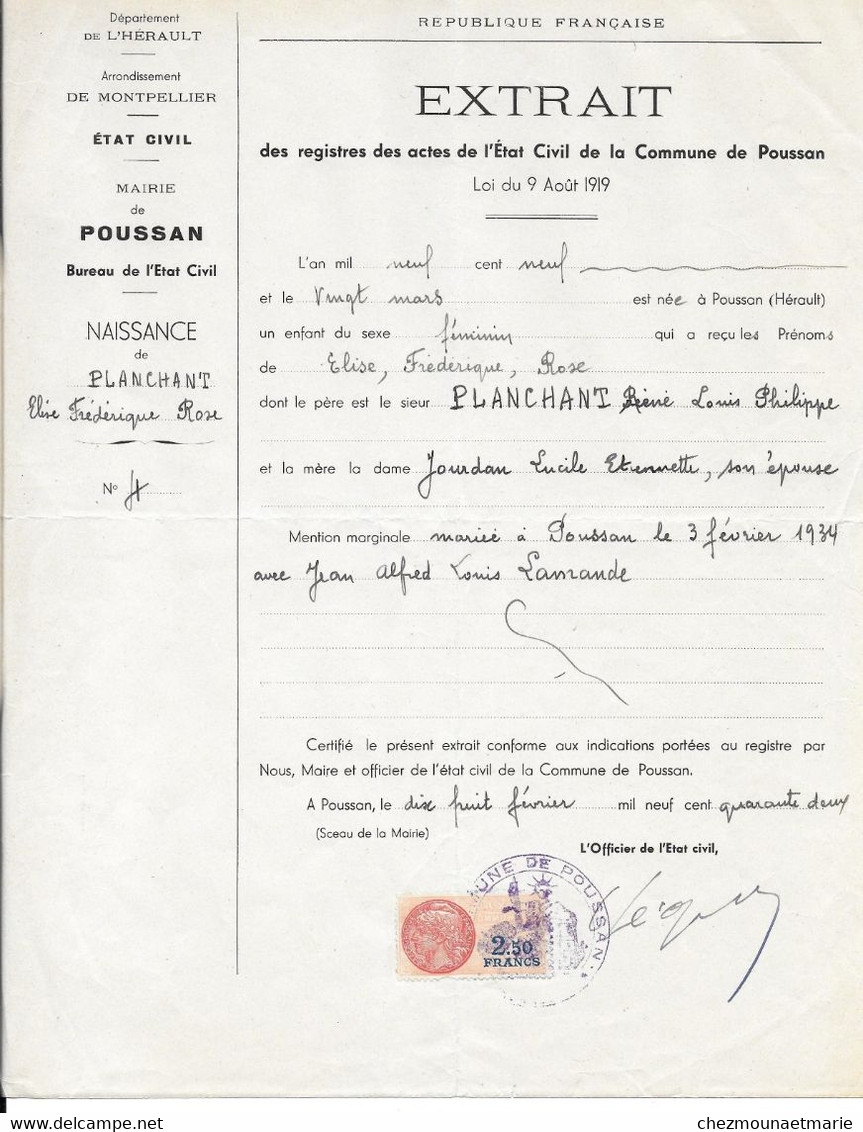 Département
DE L'HÉRAULT
Arrondissement
DE MONTPELLIER
ÉTAT CIVIL
MAIRIE
de
POUSSAN
Bureau de l'Etat Civil
NAISSANCE
de
PLANCHANT
Elise Frédérique Rose
No 4
REPUBLIQUE FRANÇAISE
EXTRAIT
des registres des actes de l'État Civil de la Commune de Poussan
Loi du 9 Août 1919
L'an mil neuf cent neuf
et le Vingt mars est née à Poussan (Hérault)
un enfant du sexe féminin qui a reçu les Prénoms
de Elise, Frédérique, Rose
dont le père est le sieur PLANCHANT Réné Louis Philippe
et la mère la dame Jourdan Lucile Etiennette, son épouse
Mention marginale mariée à Poussan le 3 février 1934
avec Jean Alfred Louis Lamande
Certifié le présent extrait conforme aux indications portées au registre par
Nous, Maire et officier de l'état civil de la Commune de Poussan.
A Poussan, le dix huit février mil neuf cent quarante deux
(Sceau de la Mairie)
L'Officier de l'Etat civil,
DE POUSSAN
2.50
FRANCS
chezmounaetmarie